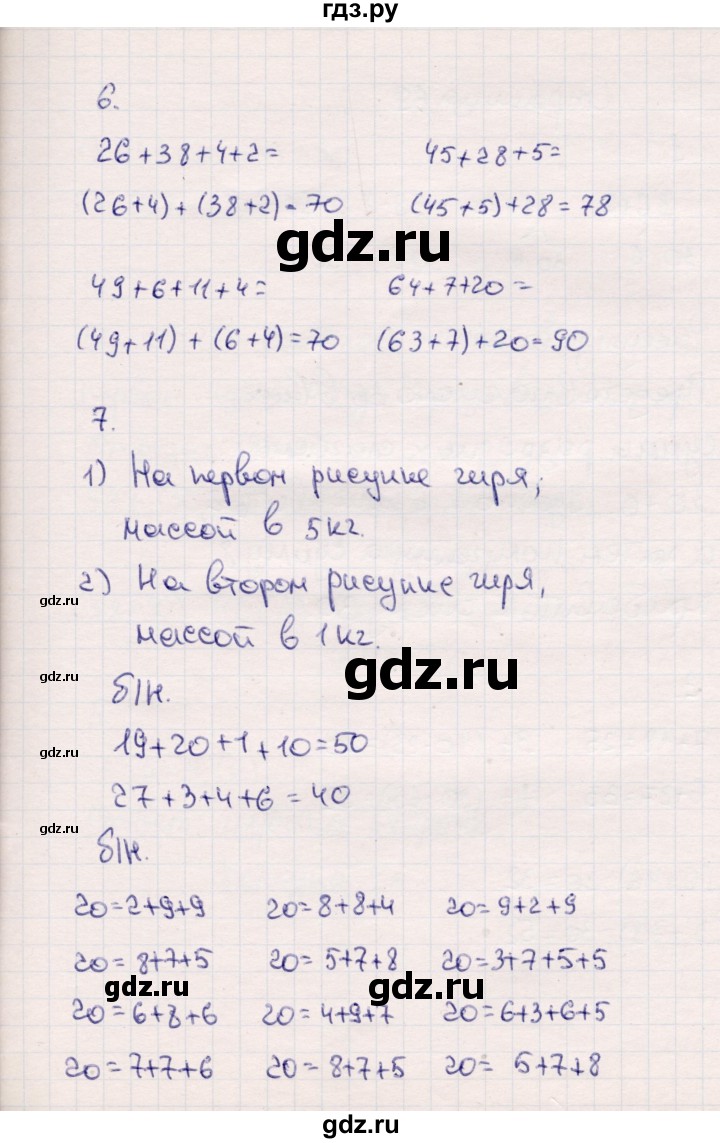 гдз.ру
6.
26+38+4+2=
45+28+5=
(26+4)+(38+2)=70
(45+5)+28=78
gdz.ru
49+6+11+4=
64+7+20=
(49+11)+(6+4)=70
(63+7)+20=90
7.
1) На первом рисунке гиря,
массой в 5кг.
2) На втором рисунке гиря,
gdz.ru
массой в 1кг.
gdz.ru
gdz.ru
б/н.
19+20+1+10=50
gdz.ru
27+3+4+6=40
gdz.ru
б/н.
20=2+9+9 20=8+8+4 20=9+2+9
20=8+7+5 20=5+7+8 20=3+7+5+5
gdz.ru gdz.ru
20=6+8+6 20=4+9+7 20=6+3+6+5
20=7+7+6 20=8+7+5 20= 5+7+8
gdz.ru